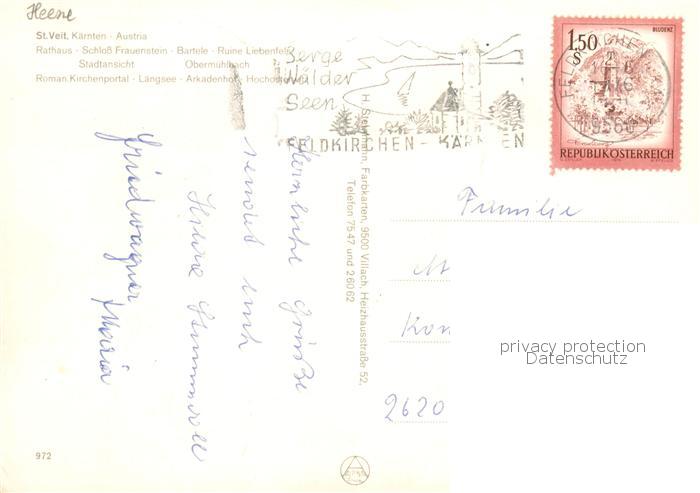 Heene
St.Veit, Kärnten · Austria
Rathaus · Schloß Frauenstein · Bartele · Ruine Liebenfels
Stadtansicht Obermühlbach
Roman.Kirchenportal · Längsee · Arkadenhof Hochosterwitz
Berge
Wälder
Seen
FELDKIRCHEN - KÄRNTEN
9560
BLUDENZ
1.50
S
REPUBLIK ÖSTERREICH
Herzliche Grüße
sendet euch
Friedwagner
Maria
Telefon 75 47 und 2 60 62
Farbkarten, 9500 Villach, Heizhausstraße 52,
Familie
2620
privacy protection
Datenschutz
972